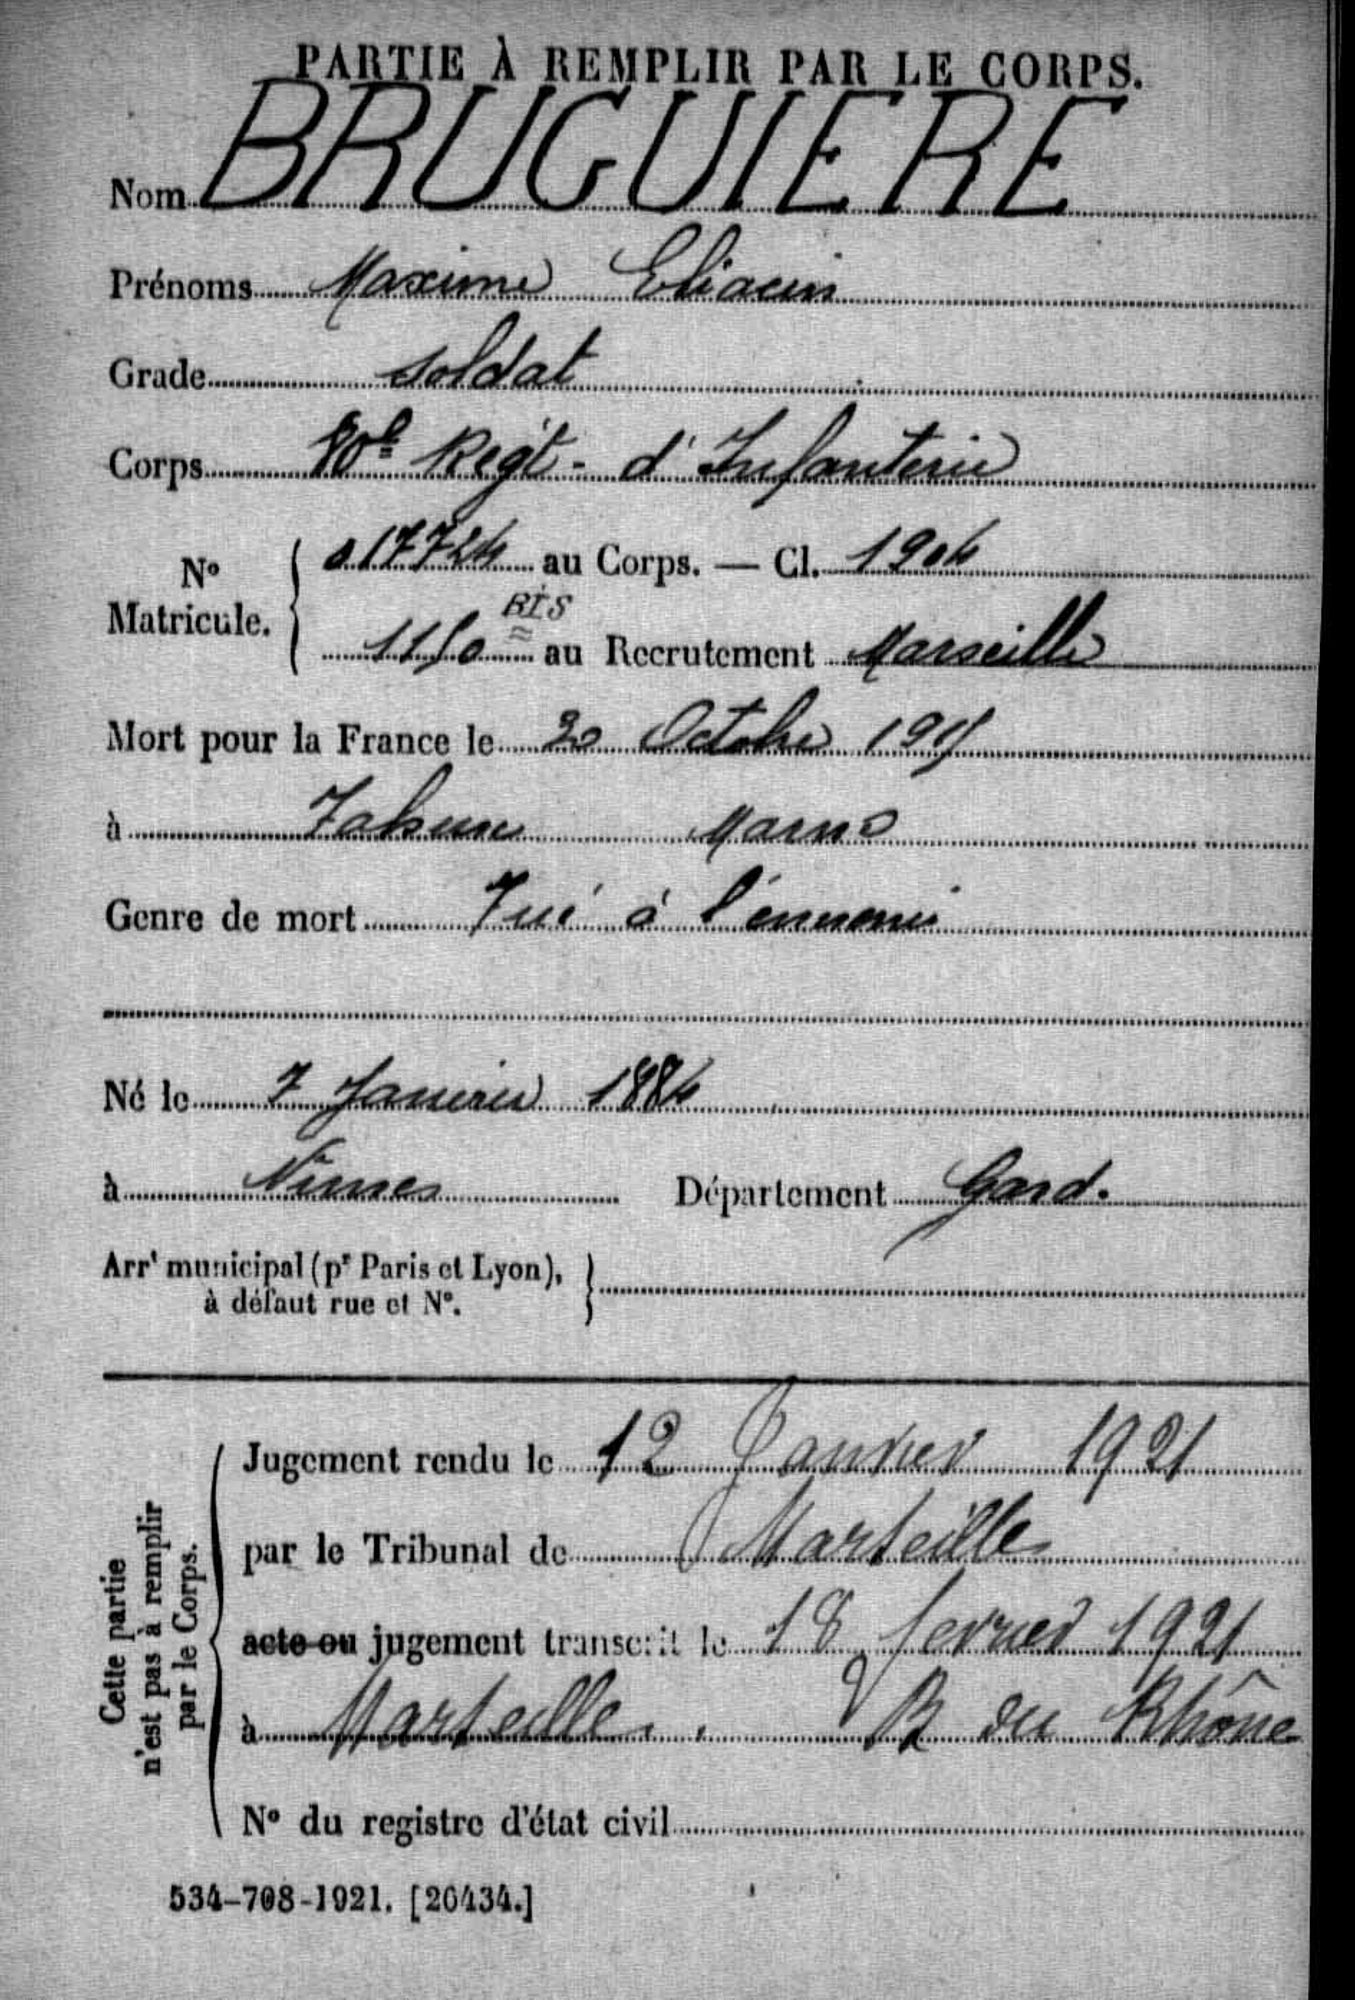 PARTIE À REMPLIR PAR LE CORPS.
Nom BRUGUIERE
Prénoms Maxime Eliacin
Grade soldat
Corps 80e Regt- d'Infanterie
No Matricule. 017724 au Corps. — Cl. 1904
1150 BIS au Recrutement Marseille
Mort pour la France le 30 Octobre 1915
à Tahure Marne
Genre de mort Tué à l'ennemi
Né le 7 Janvier 1884
à Nimes Département Gard.
Arrt municipal (pr Paris et Lyon),
à défaut rue et No.
Cette partie
n'est pas à remplir
par le Corps.
Jugement rendu le 12 Janvier 1921
par le Tribunal de Marseille
acte ou jugement transcrit le 18 fevrier 1921
à Marseille. B du Rhône
No du registre d'état civil
534-708-1921. [20434.]